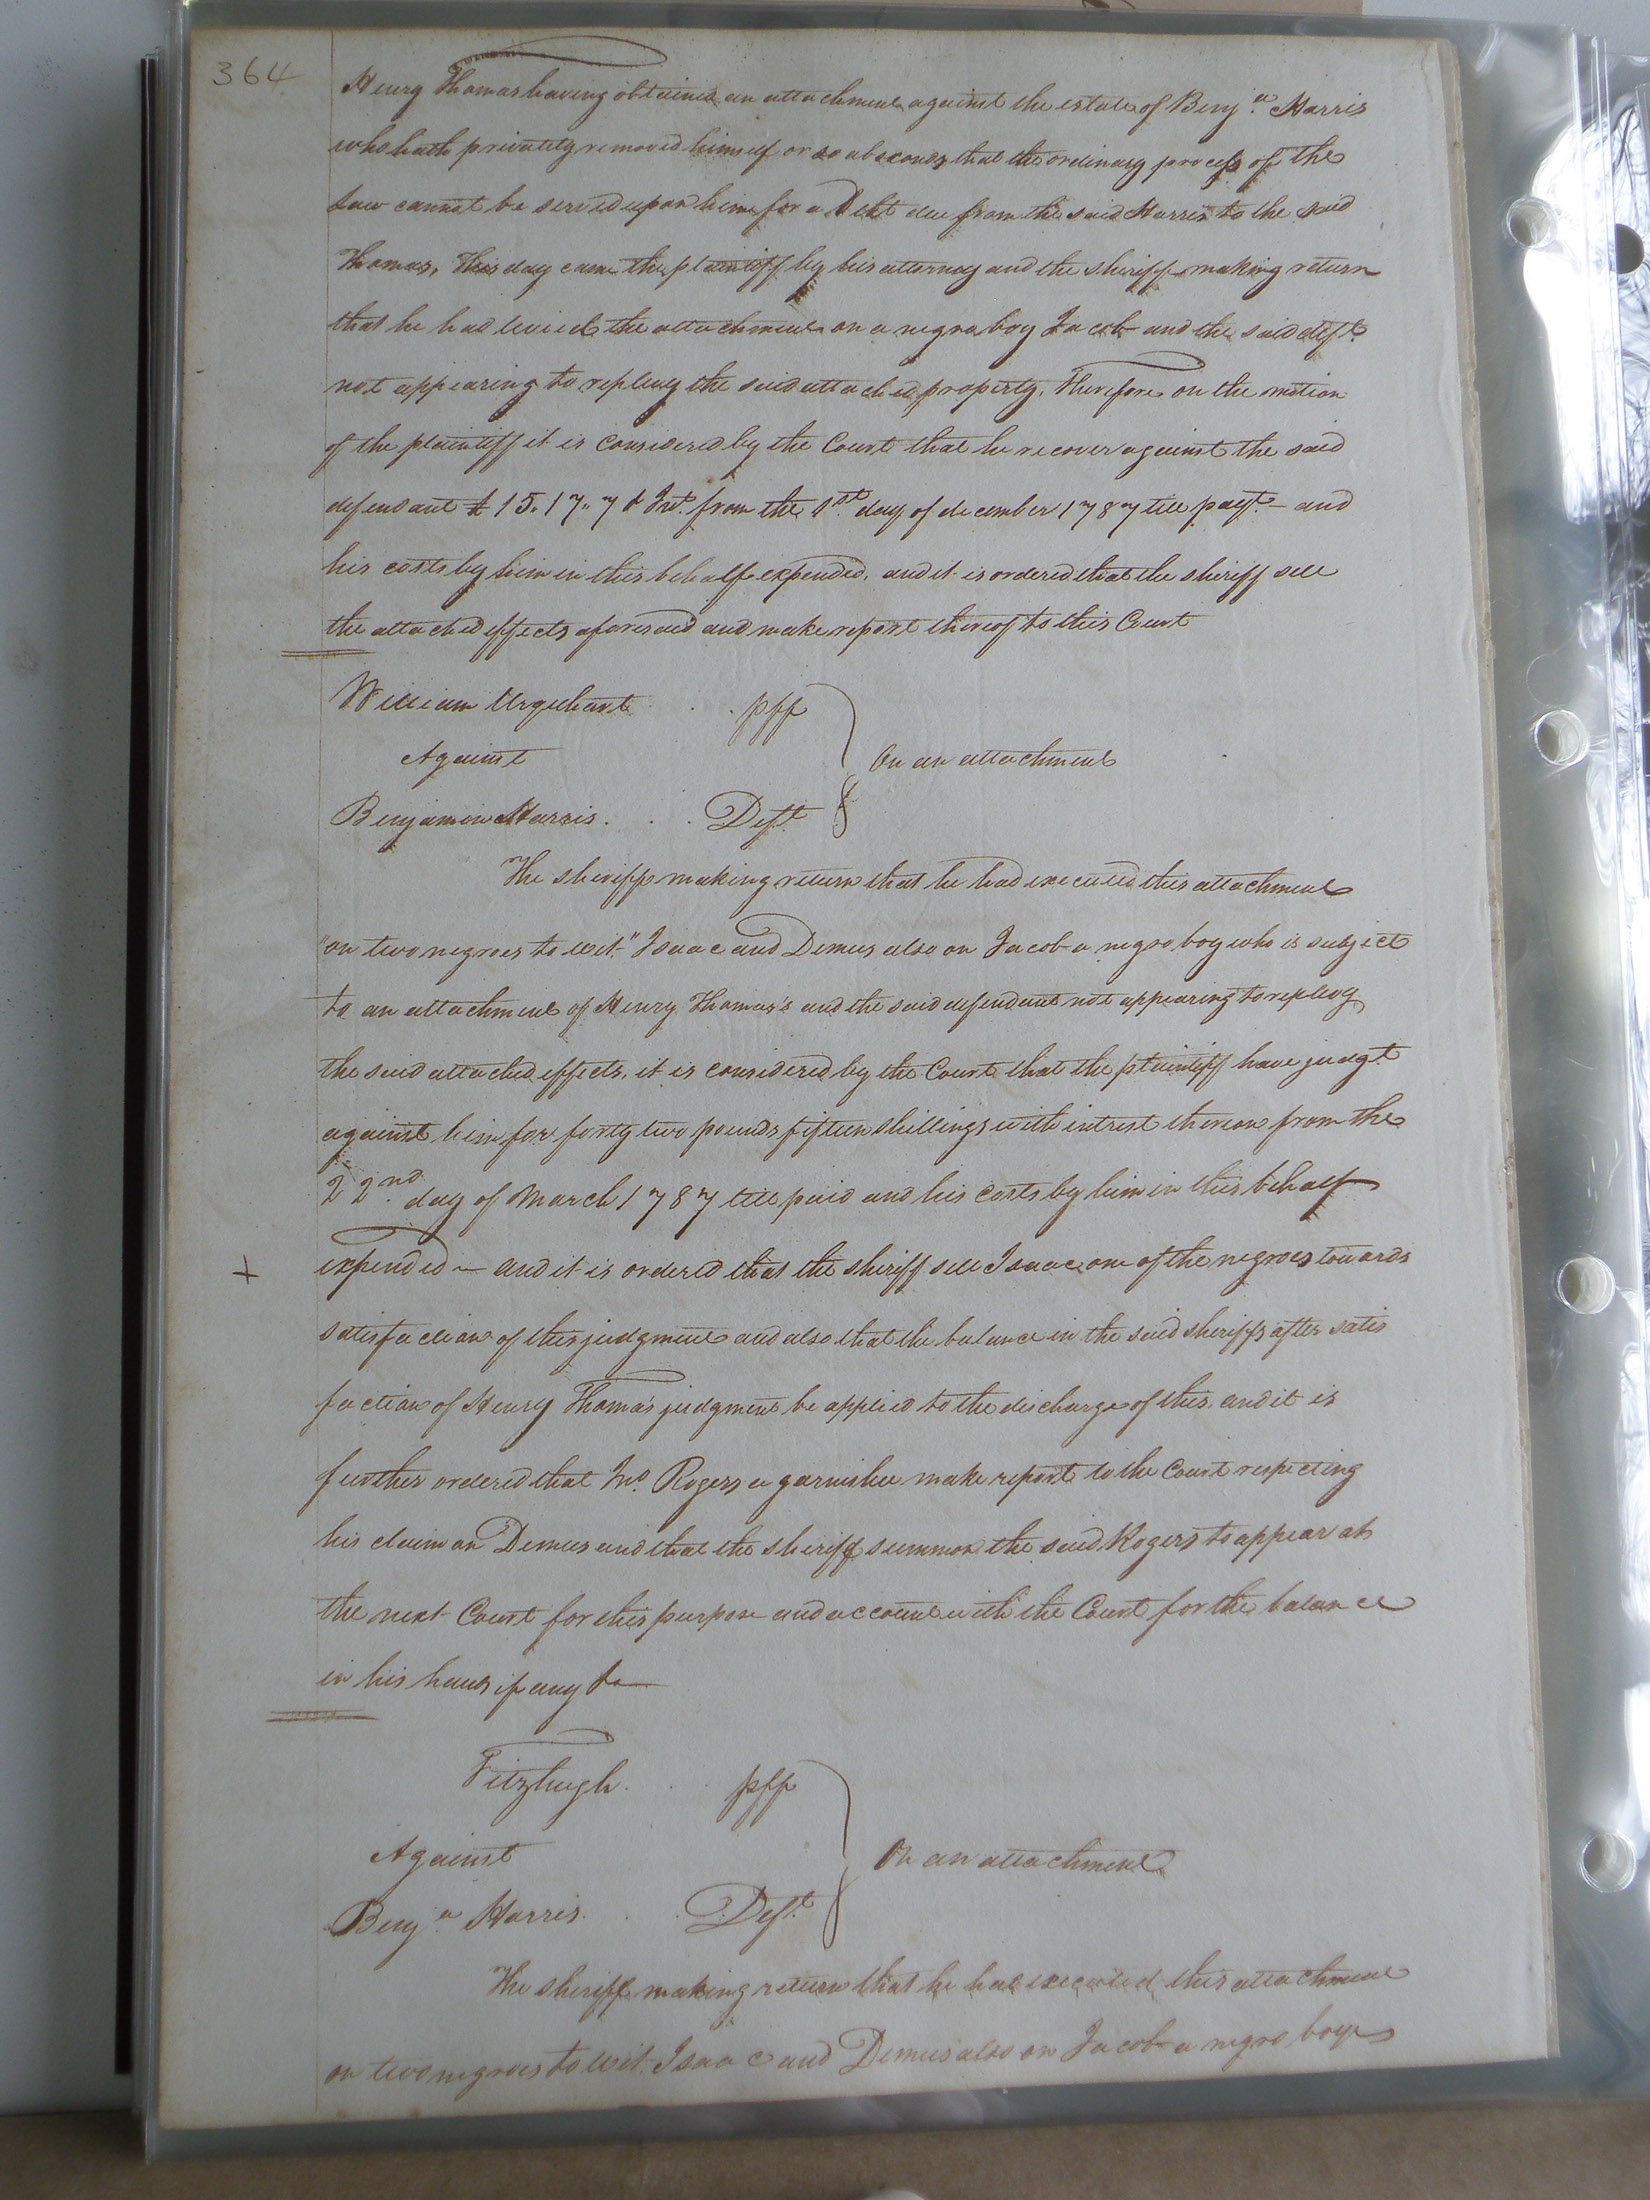 364
Henry Thomas having obtained an attachment against the estate of Benj.a Harris
who hath privately removed himself or so absconds that the ordinary process of the
Law cannot be served upon him for a Debt due from the said Harris to the said
Thomas, This day came the plaintiff by his attorney and the sheriff making return
that he had levied the attachment on a negro boy Jacob and the said deft.
not appearing to replevy the said attached property, Therefore on the motion
of the plaintiff it is considered by the Court that he recover against the said
defendant £ 15.17.7 & Int. from the 1st day of december 1787 till payt. - and
his costs by him in this behalf expended, and it is ordered that the sheriff sell
the attached effects aforesaid and make report thereof to this Court
William Urquhart . . pff
Against
On an attachment
Benjamin Harris . . . Deft.
The sheriff making return that he had executed this attachment
"on two negroes to wit" Isaac and Demus also on Jacob a negro boy who is subject
to an attachment of Henry Thomas's and the said defendant not appearing to replevy
the said attached effects, it is considered by the Court that the plaintiff have judgt
against him for forty two pounds fifteen shillings with intrest thereon from the
22nd. day of March 1787 till paid and his costs by him in this behalf
+ expended - and it is ordered that the sheriff sell Isaac one of the negroes towards
satisfaction of this judgment and also that the balance in the said sheriffs after satis
faction of Henry Thomas' judgment be applied to the discharge of this, and it is
further ordered that Jno. Rogers a garnishee make report to the Court respecting
his claim on Demus and that the sheriff summon the said Rogers to appear at
the next Court for this purpose and account with the Court for the balance
in his hands if any &c
Fitzhugh . . pff
Against
On an attachment
Benj.a Harris . . Deft.
The sheriff making return that he had executed this attachment
on two negroes to wit. Isaac and Demus also on Jacob a negro boy